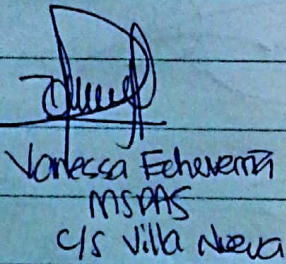 Vanessa Echeverría
MSPAS
C/S Villa Nueva